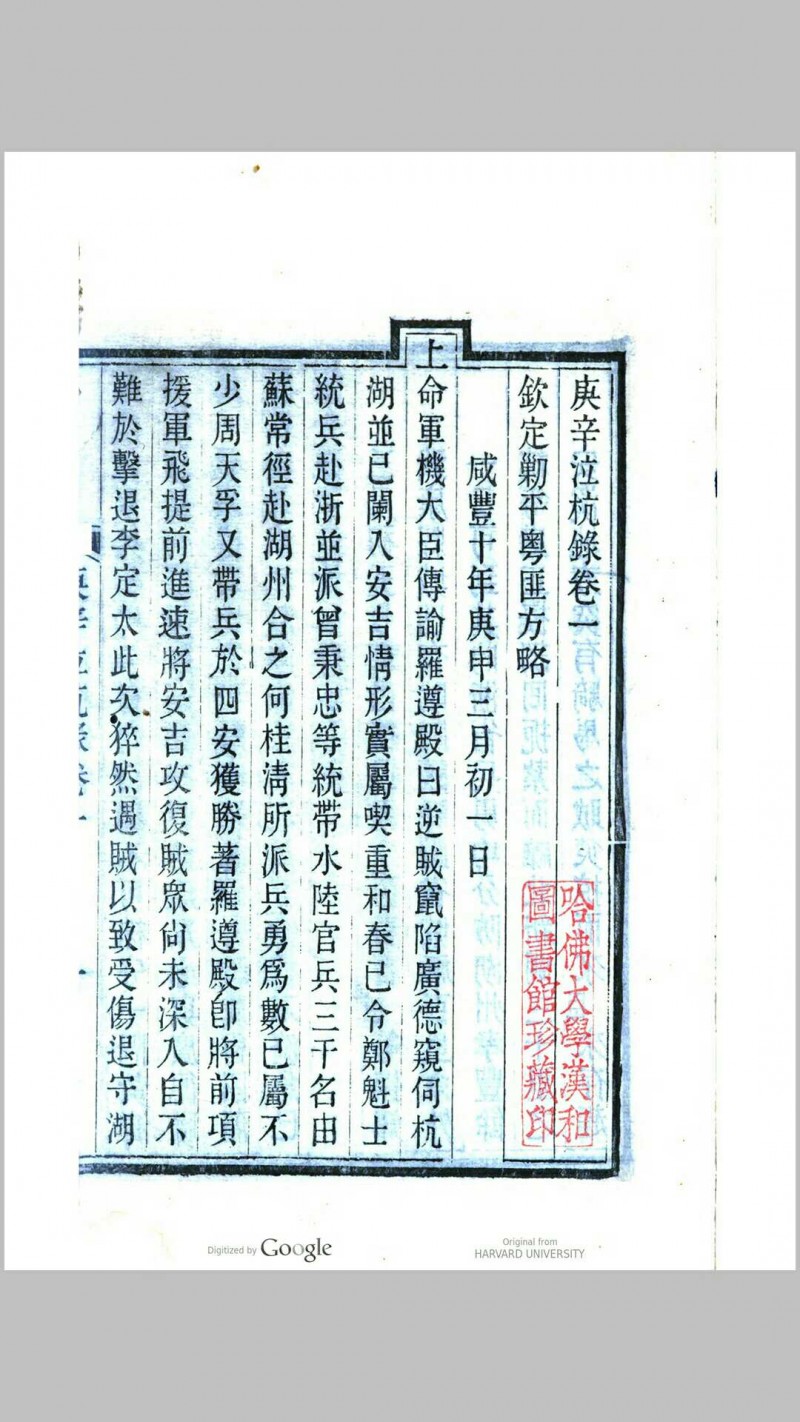 庚辛泣杭錄卷一
欽定勦平粵匪方略
咸豐十年庚申三月初一日
上命軍機大臣傳諭羅遵殿曰逆賊竄陷廣德窺伺杭
湖並已闌入安吉情形實屬喫重和春已令鄭魁士
統兵赴浙並派曾秉忠等統帶水陸官兵三千名由
蘇常徑赴湖州合之何桂淸所派兵勇爲數已屬不
少周天孚又帶兵於四安獲勝著羅遵殿卽將前項
援軍飛提前進速將安吉攻復賊眾尙未深入自不
難於擊退李定太此次猝然遇賊以致受傷退守湖
哈佛大學漢和
圖書館珍藏印
Digitized by Google
Original from
HARVARD UNIVERSITY